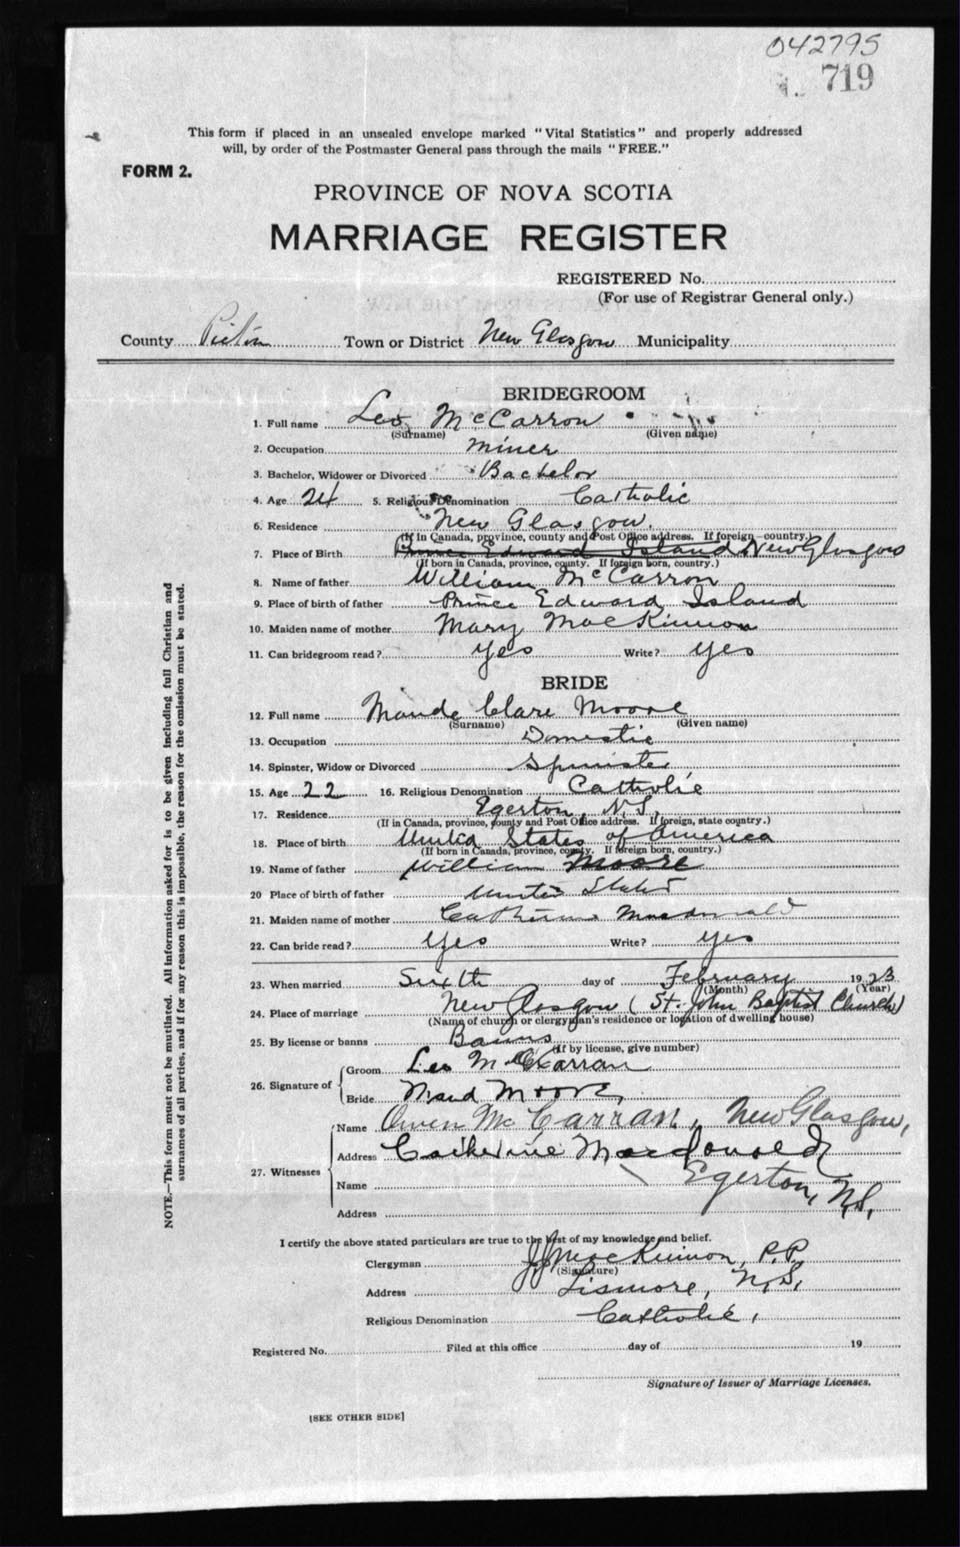 042795
719
This form if placed in an unsealed envelope marked "Vital Statistics" and properly addressed
will, by order of the Postmaster General pass through the mails "FREE."
FORM 2.
PROVINCE OF NOVA SCOTIA
MARRIAGE REGISTER
REGISTERED No.
(For use of Registrar General only.)
County Pictou Town or District New Glasgow Municipality
BRIDEGROOM
1. Full name Leo McCarron
(Surname) (Given name)
2. Occupation miner
3. Bachelor, Widower or Divorced Bachelor
4. Age 24 5. Religious Denomination Catholic
6. Residence New Glasgow.
(If in Canada, province, county and Post Office address. If foreign country.)
7. Place of Birth Prince Edward Island New Glasgow
(If born in Canada, province, county. If foreign born, country.)
8. Name of father William McCarron
9. Place of birth of father Prince Edward Island
10. Maiden name of mother Mary MacKinnon
11. Can bridegroom read? yes Write? yes
BRIDE
12. Full name Maude Clare Moore
(Surname) (Given name)
13. Occupation Domestic
14. Spinster, Widow or Divorced Spinster
15. Age 22 16. Religious Denomination Catholic
17. Residence Egerton, N.S.
(If in Canada, province, county and Post Office address. If foreign, state country.)
18. Place of birth United States of America
(If born in Canada, province, county. If foreign born, country.)
19. Name of father William Moore
20 Place of birth of father United States
21. Maiden name of mother Catherine Macdonald
22. Can bride read? yes Write? yes
23. When married Sixth day of February 1923
(Month) (Year)
24. Place of marriage New Glasgow (St. John Baptist Church)
(Name of church or clergyman's residence or location of dwelling house)
25. By license or banns Banns
(If by license, give number)
26. Signature of Groom Leo McCarran
Bride Maud Moore
27. Witnesses Name Owen McCarran, New Glasgow,
Address Catherine Macdonald
Name Egerton, N.S.
Address
I certify the above stated particulars are true to the best of my knowledge and belief.
Clergyman JJ MacKinnon, P.P.
(Signature)
Address Lismore, N.S.
Religious Denomination Catholic,
Registered No. Filed at this office day of 19
Signature of Issuer of Marriage Licenses.
[SEE OTHER SIDE]
NOTE.—This form must not be mutilated. All information asked for is to be given including full Christian and
surnames of all parties, and if for any reason this is impossible, the reason for the omission must be stated.